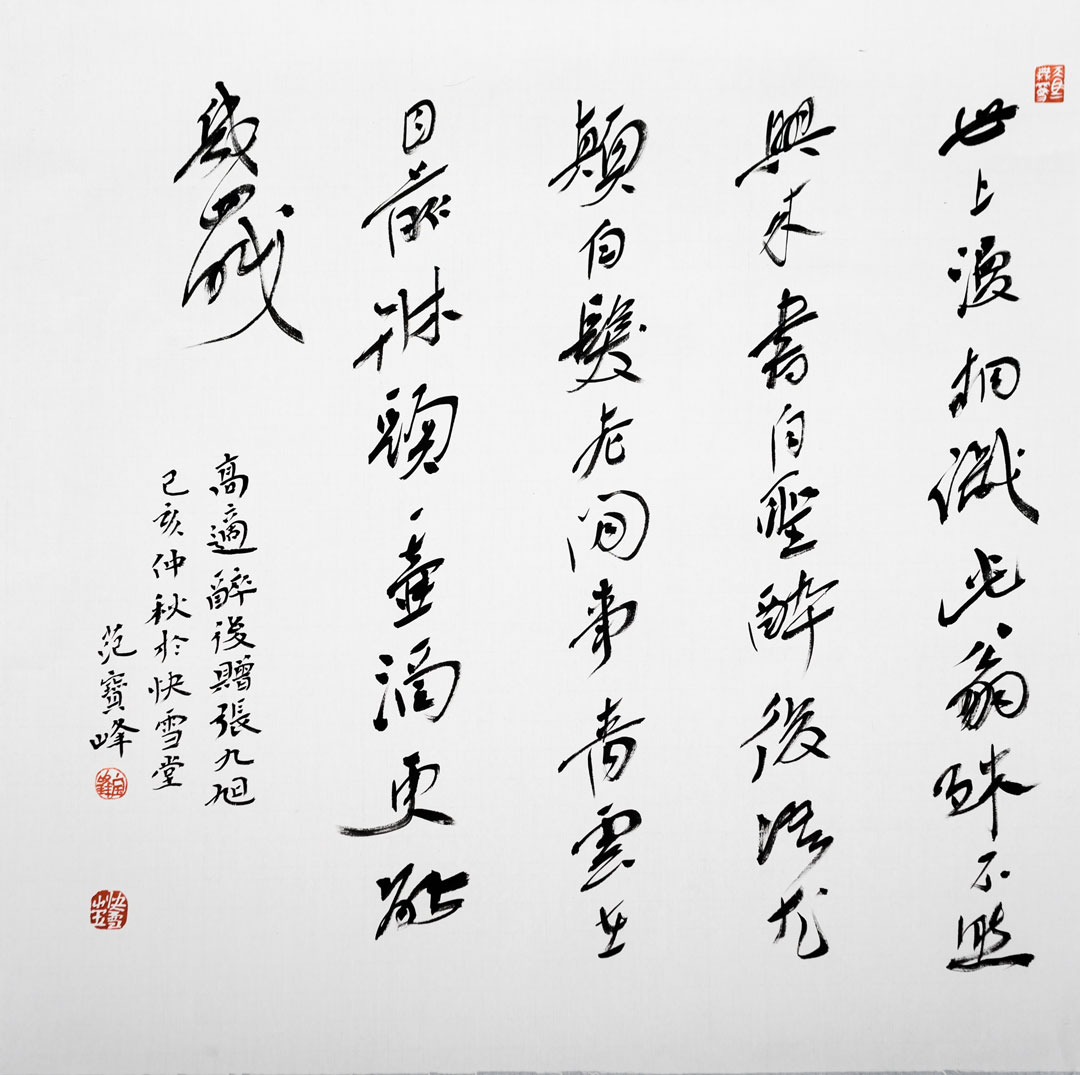 世上漫相識此翁殊不然
興來書自聖醉後語尤
顛白髮老閒事青雲在
目前牀頭一壺酒更能
幾回眠
高適醉後贈張九旭
己亥仲秋於快雪堂
范寶峰